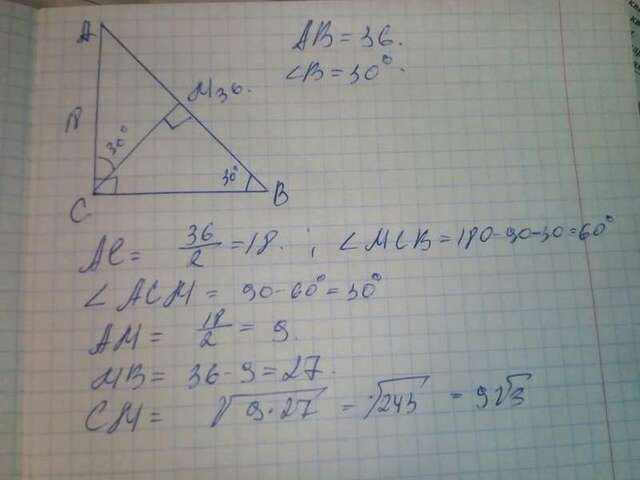 A
AB = 36.
∠B = 30°.
M 36.
30°
30°
C
B
AC = 36/2 = 18. ; ∠MCB = 180-90-30=60°
∠ACM = 90-60° = 30°
AM = 18/2 = 9.
MB = 36-9=27.
CM = √9·27 = √243 = 9√3